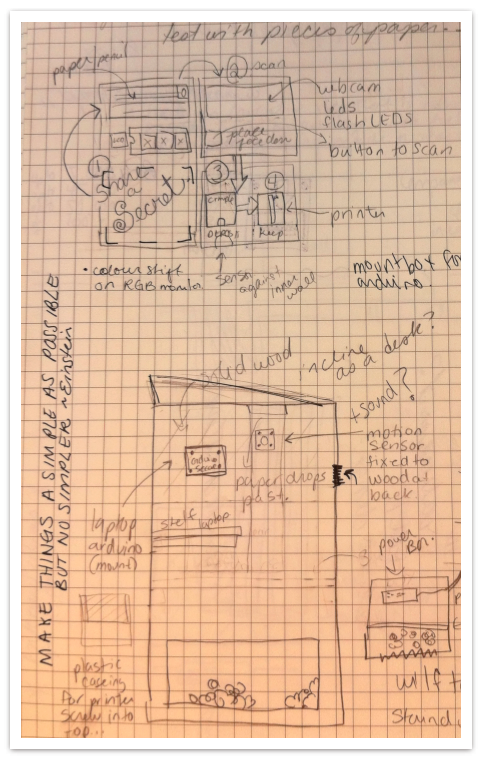 test with pieces of paper.
paper/pencil
2 scan
webcam
leds
flash LEDS
place
face down
button to scan
1
Share
a
Secret
3
4
printer
keep
• colour shift
on RGB
sensor
against
inner
wall
mount box for
arduino.
MAKE THINGS A SIMPLE AS POSSIBLE
BUT NO SIMPLER ~ Einstein
solid wood
incline
as a desk?
+ sound?
motion
sensor
fixed to
wood at
back
paper drops
past.
laptop
arduino
(mount)
shelf laptop
power
plastic
caseing
for printer
screw into
top...
w/
Stand